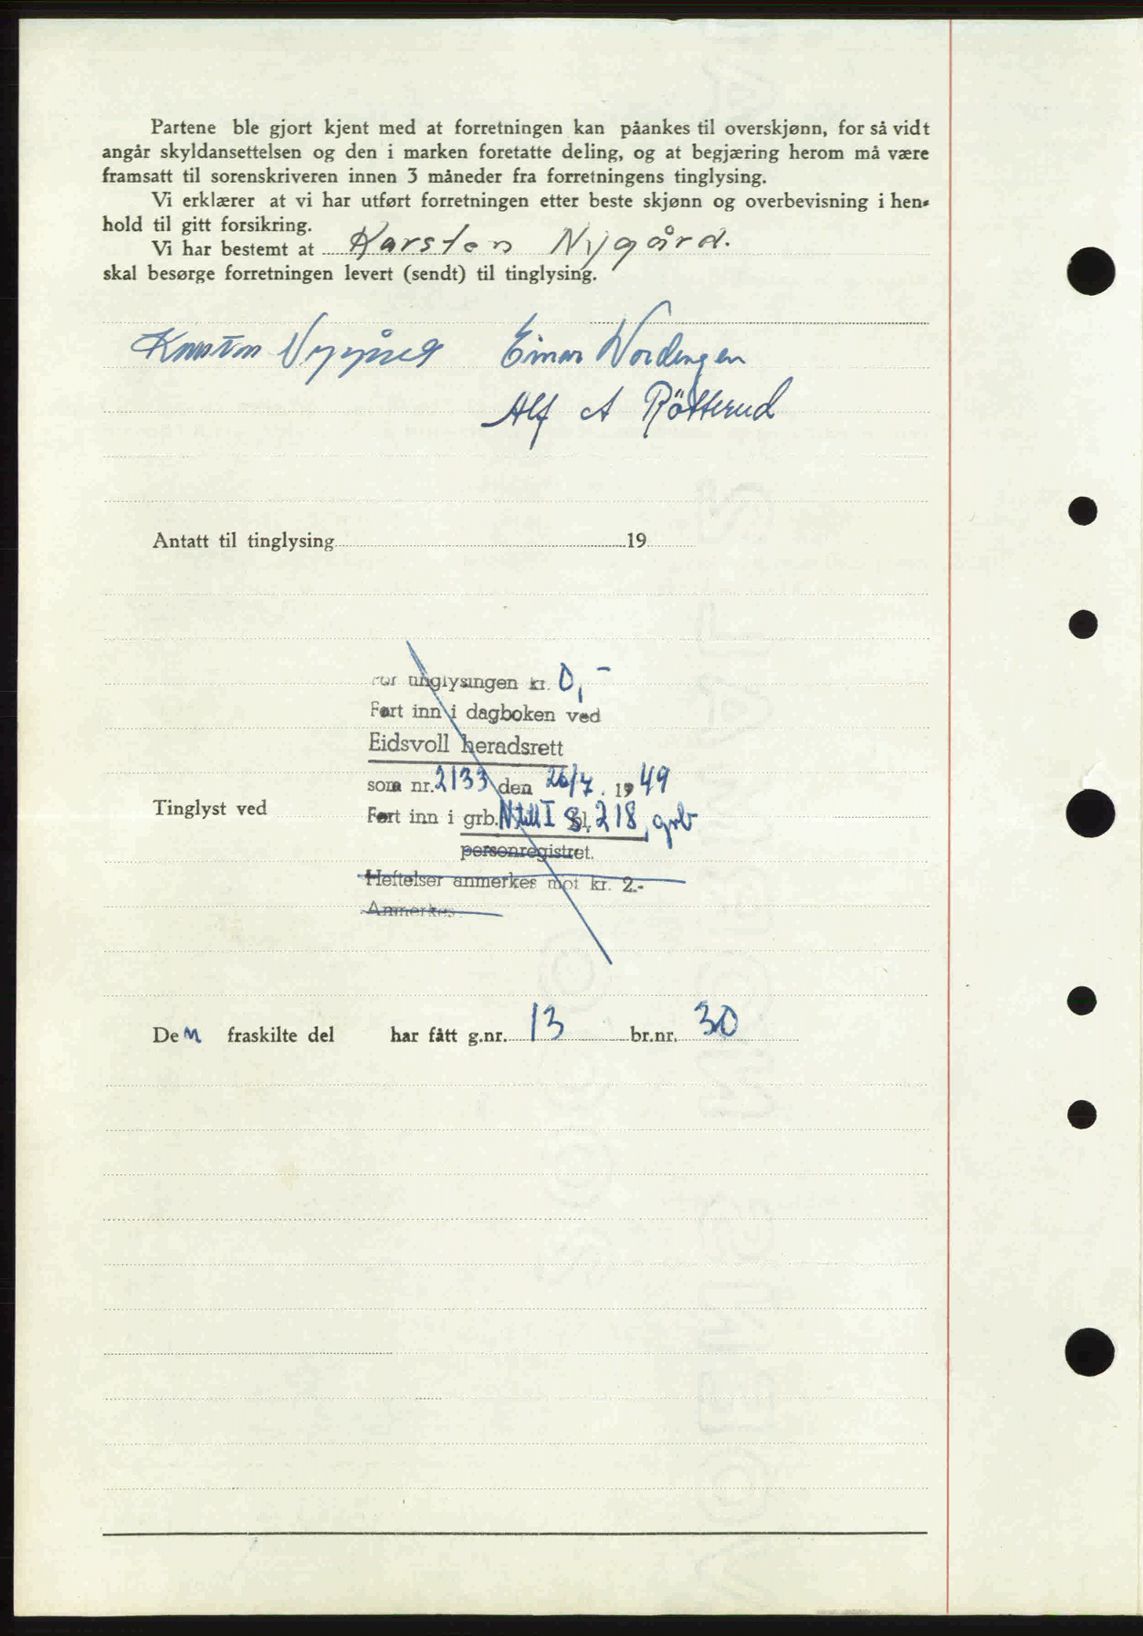 Partene ble gjort kjent med at forretningen kan påankes til overskjønn, for så vidt
angår skyldansettelsen og den i marken foretatte deling, og at begjæring herom må være
framsatt til sorenskriveren innen 3 måneder fra forretningens tinglysing.
Vi erklærer at vi har utført forretningen etter beste skjønn og overbevisning i hen-
hold til gitt forsikring.
Vi har bestemt at Karsten Nygård.
skal besørge forretningen levert (sendt) til tinglysing.
Karsten Nygård Einar Nordengen
Alf A Rötterud
Antatt til tinglysing 19
For tinglysingen kr. 0,-
Ført inn i dagboken ved
Eidsvoll heradsrett
som nr. 2133 den 26/7. 1949
Tinglyst ved
Ført inn i grb. N till I 218, grb
personregistret.
Heftelser anmerkes mot kr. 2.-
Anmerkes
Den fraskilte del har fått g.nr. 13 br.nr. 30